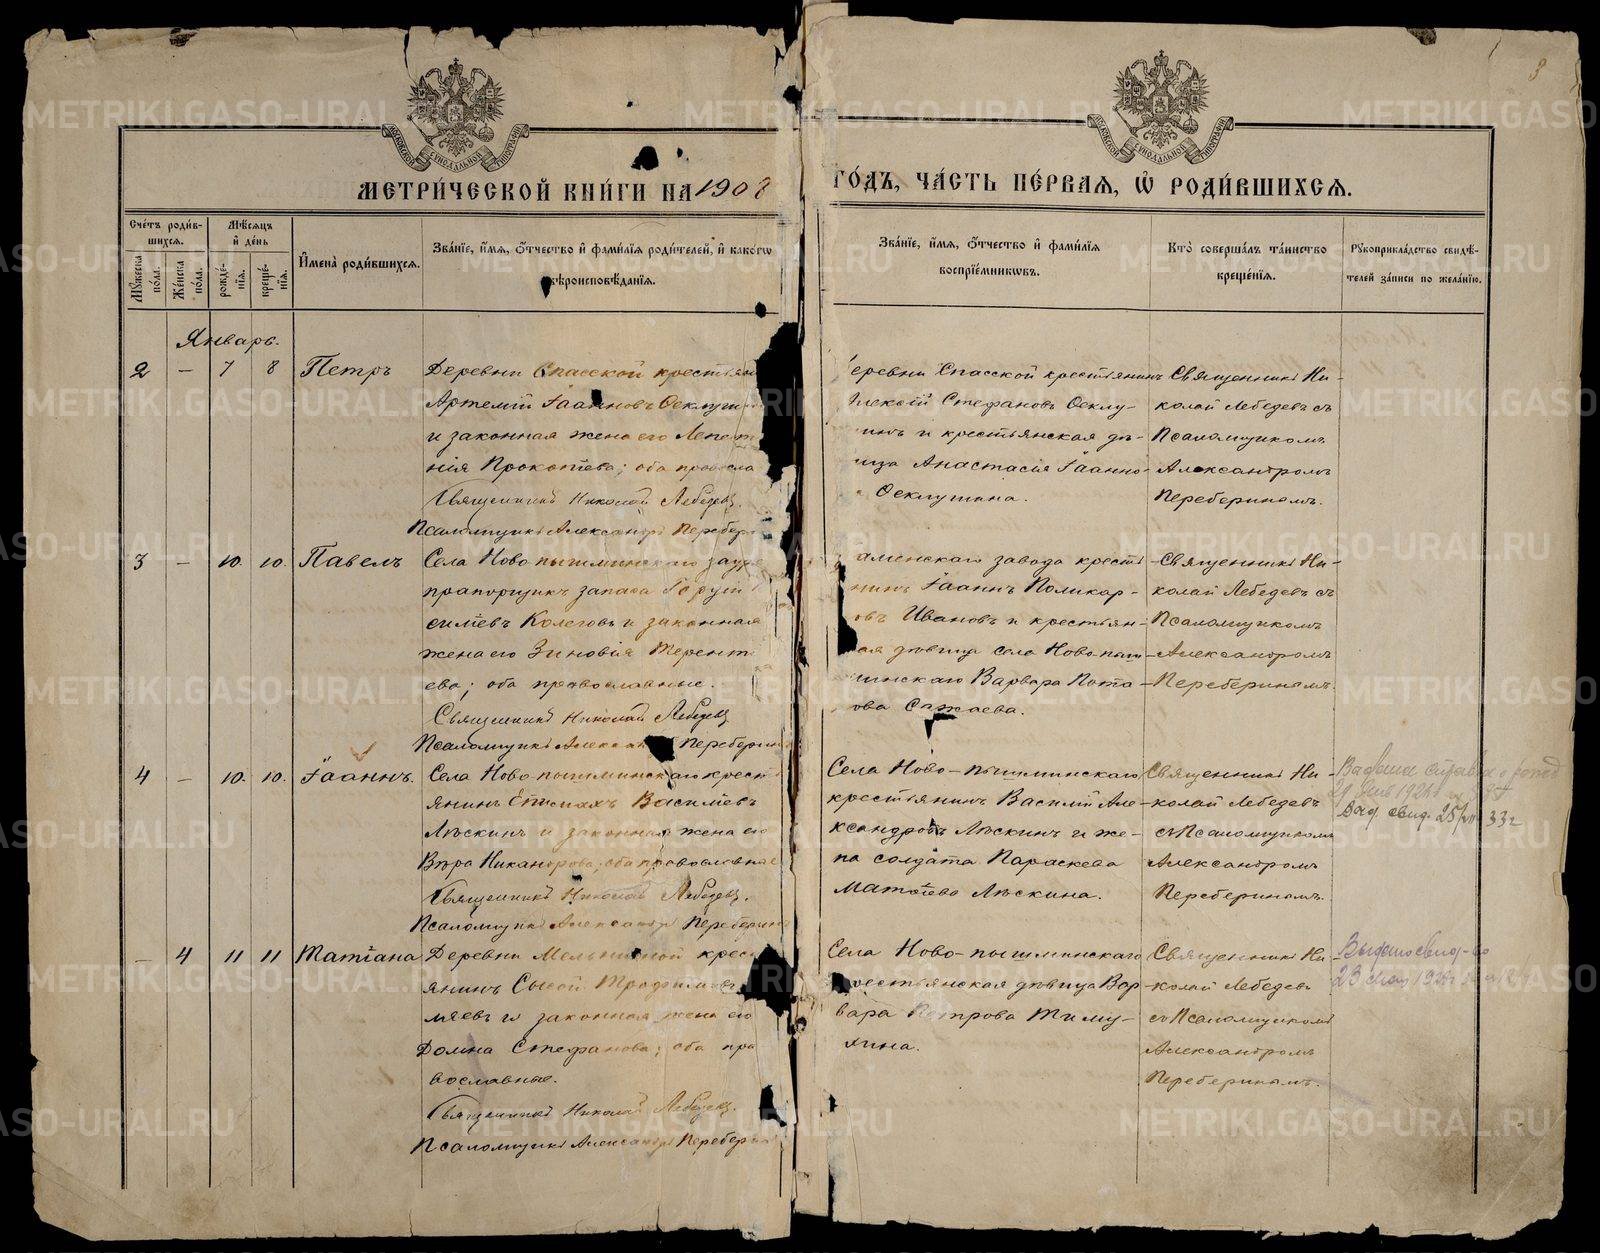 МЕТРИ́ЧЕСКОЙ КНИ́ГИ НА 1908 ГО́ДЪ, ЧА́СТЬ ПЕ́РВАѦ, Ѡ҆ РОДИ́ВШИХСѦ.
3
Сче́тъ роди́в-
шихсѧ.
Мꙋ́жеска по́ла.
Же́нска по́ла.
Мѣ́сѧцъ и҆ де́нь
рожде́-
нїѧ.
креще́-
нїѧ.
И҆мена̀ роди́вшихсѧ.
Зва́нїе, и҆́мѧ, ѻ҆́тчество и҆ фами́лїѧ роди́телей, и҆ како́гѡ
вѣроисповѣ́данїѧ.
Зва́нїе, и҆́мѧ, ѻ҆́тчество и҆ фами́лїѧ
воспрїе́мникѡвъ.
Кто̀ соверша́лъ та́инство
креще́нїѧ.
Рꙋкоприкла́дство свидѣ́-
телей за́писи по жела́нїю.
Январь.
2 — 7 8 Петръ
Деревни Спасской крестьян
Артемій Іоанновъ
и законная жена его
нія Прокопіева; оба правосла
Священникъ Николай Лебедевъ.
Псаломщикъ Александръ Перебер
еревни Спасской крестьянинъ
лексѣй Стефановъ
инъ и крестьянская дѣ-
ица Анастасія Іоанно-
Священникъ Ни-
колай Лебедевъ съ
Псаломщикомъ
Александромъ
Переберинымъ.
3 — 10. 10. Павелъ
Села Ново-пышминскаго зауря
прапорщикъ запаса
силіевъ Колеговъ и законная
жена его Зиновія Терент
ева; оба православные.
Священникъ Николай Лебедевъ
Псаломщикъ Александръ Переберин
аменскаго завода кресть
нинъ Іоаннъ Поликар-
овъ Ивановъ и крестьян-
ая дѣвица села Ново-пыш-
минскаго Варвара Пота-
ова Сажаева.
Священникъ Ни-
колай Лебедевъ съ
Псаломщикомъ
Александромъ
Переберинымъ.
4 — 10. 10. Іоаннъ.
Села Ново-пышминскаго крест
янинъ Епимахъ Василіевъ
Лѣскинъ и законная жена его
Вѣра Никанорова; оба православные
Священникъ Николай Лебедевъ.
Псаломщикъ Александръ Переберин
Села Ново-пышминскаго
крестьянинъ Василій Але-
ксандровъ Лѣскинъ и же-
на солдата Параскева
Матѳіева Лѣскина.
Священникъ Ни-
колай Лебедевъ
съ Псаломщикомъ
Александромъ
Переберинымъ.
Выд. свид. 25/VII 33г
— 4 11 11 Татіана
Деревни Мельничной крес
янинъ Сысой Трофимовъ
мяевъ и законная жена его
Домна Стефанова; оба пра
вославные.
Священникъ Николай Лебедевъ.
Псаломщикъ Александръ Перебер
Села Ново-пышминскаго
рестьянская дѣвица Вар
вара Петрова Тиму-
хина.
Священникъ Ни-
колай Лебедевъ
съ Псаломщикомъ
Александромъ
Переберинымъ.
23
METRIKI.GASO-URAL.RU